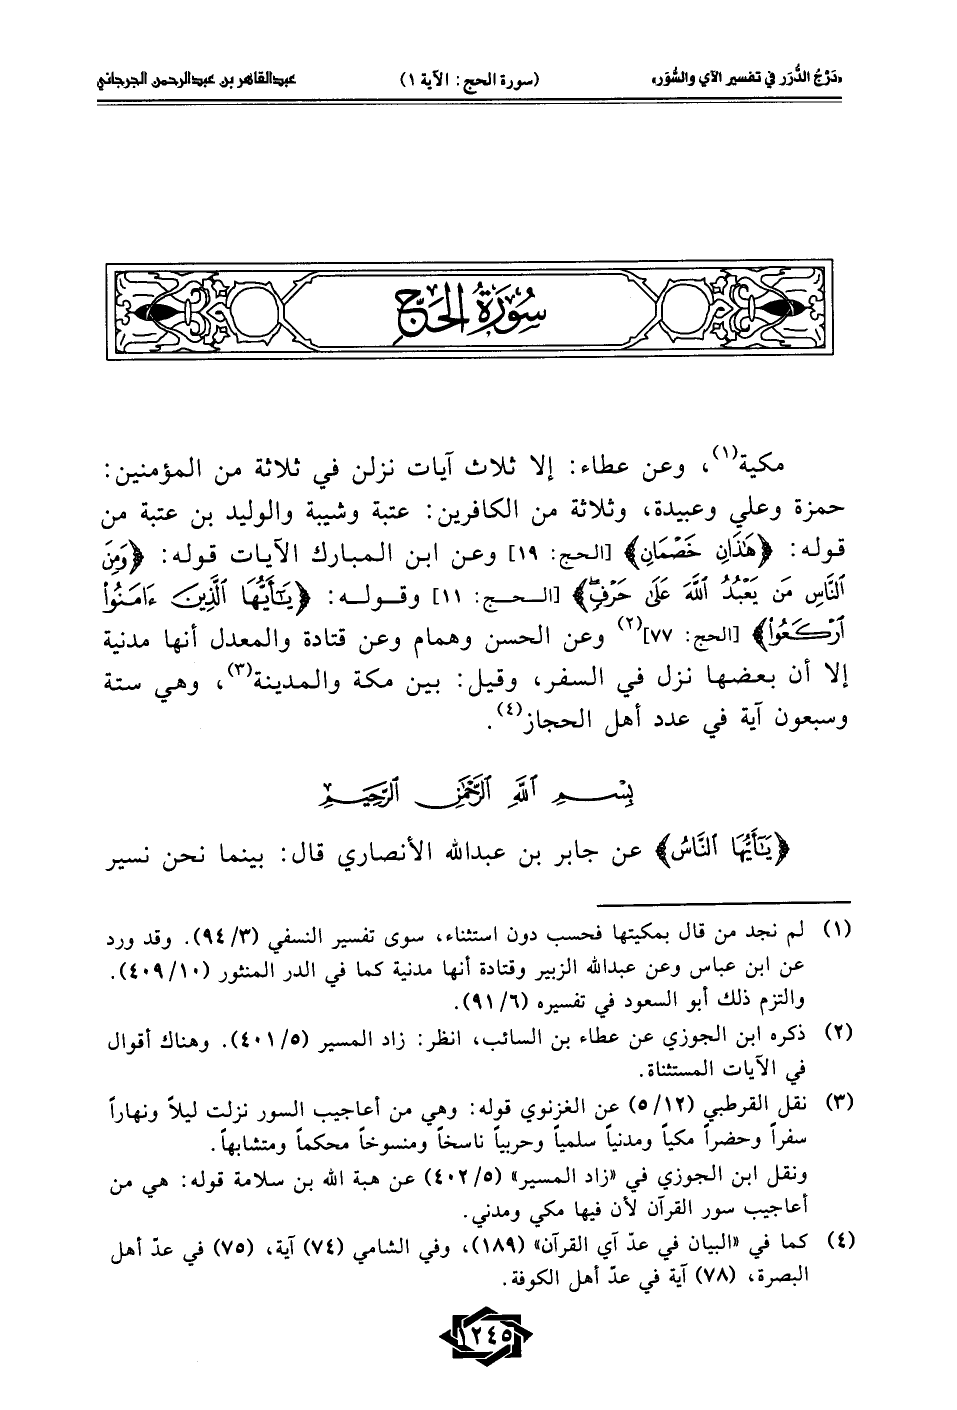 «دَرْجُ الدُّرَر في تفسير الآي والسُّوَر» (سورة الحج: الآية ١) عبدالقاهر بن عبدالرحمن الجرجاني
سُورَةُ الحَجّ
مكية(١)، وعن عطاء: إلا ثلاث آيات نزلن في ثلاثة من المؤمنين:
حمزة وعلي وعبيدة، وثلاثة من الكافرين: عتبة وشيبة والوليد بن عتبة من
قوله: ﴿هَٰذَانِ خَصْمَانِ﴾ [الحج: ١٩] وعن ابن المبارك الآيات قوله: ﴿وَمِنَ
ٱلنَّاسِ مَن يَعْبُدُ ٱللَّهَ عَلَىٰ حَرْفٍۖ﴾ [الحج: ١١] وقوله: ﴿يَٰٓأَيُّهَا ٱلَّذِينَ ءَامَنُوا۟
ٱرْكَعُوا۟﴾ [الحج: ٧٧](٢) وعن الحسن وهمام وعن قتادة والمعدل أنها مدنية
إلا أن بعضها نزل في السفر، وقيل: بين مكة والمدينة(٣)، وهي ستة
وسبعون آية في عدد أهل الحجاز(٤).
بِسْمِ ٱللَّهِ ٱلرَّحْمَٰنِ ٱلرَّحِيمِ
﴿يَٰٓأَيُّهَا ٱلنَّاسُ﴾ عن جابر بن عبدالله الأنصاري قال: بينما نحن نسير
(١) لم نجد من قال بمكيتها فحسب دون استثناء، سوى تفسير النسفي (٩٤/٣). وقد ورد
عن ابن عباس وعن عبدالله الزبير وقتادة أنها مدنية كما في الدر المنثور (٤٠٩/١٠).
والتزم ذلك أبو السعود في تفسيره (٩١/٦).
(٢) ذكره ابن الجوزي عن عطاء بن السائب، انظر: زاد المسير (٤٠١/٥). وهناك أقوال
في الآيات المستثناة.
(٣) نقل القرطبي (٥/١٢) عن الغزنوي قوله: وهي من أعاجيب السور نزلت ليلاً ونهاراً
سفراً وحضراً مكياً ومدنياً سلمياً وحربياً ناسخاً ومنسوخاً محكماً ومتشابهاً.
ونقل ابن الجوزي في «زاد المسير» (٤٠٢/٥) عن هبة الله بن سلامة قوله: هي من
أعاجيب سور القرآن لأن فيها مكي ومدني.
(٤) كما في «البيان في عدّ آي القرآن» (١٨٩)، وفي الشامي (٧٤) آية، (٧٥) في عدّ أهل
البصرة، (٧٨) آية في عدّ أهل الكوفة.
١٢٤٥